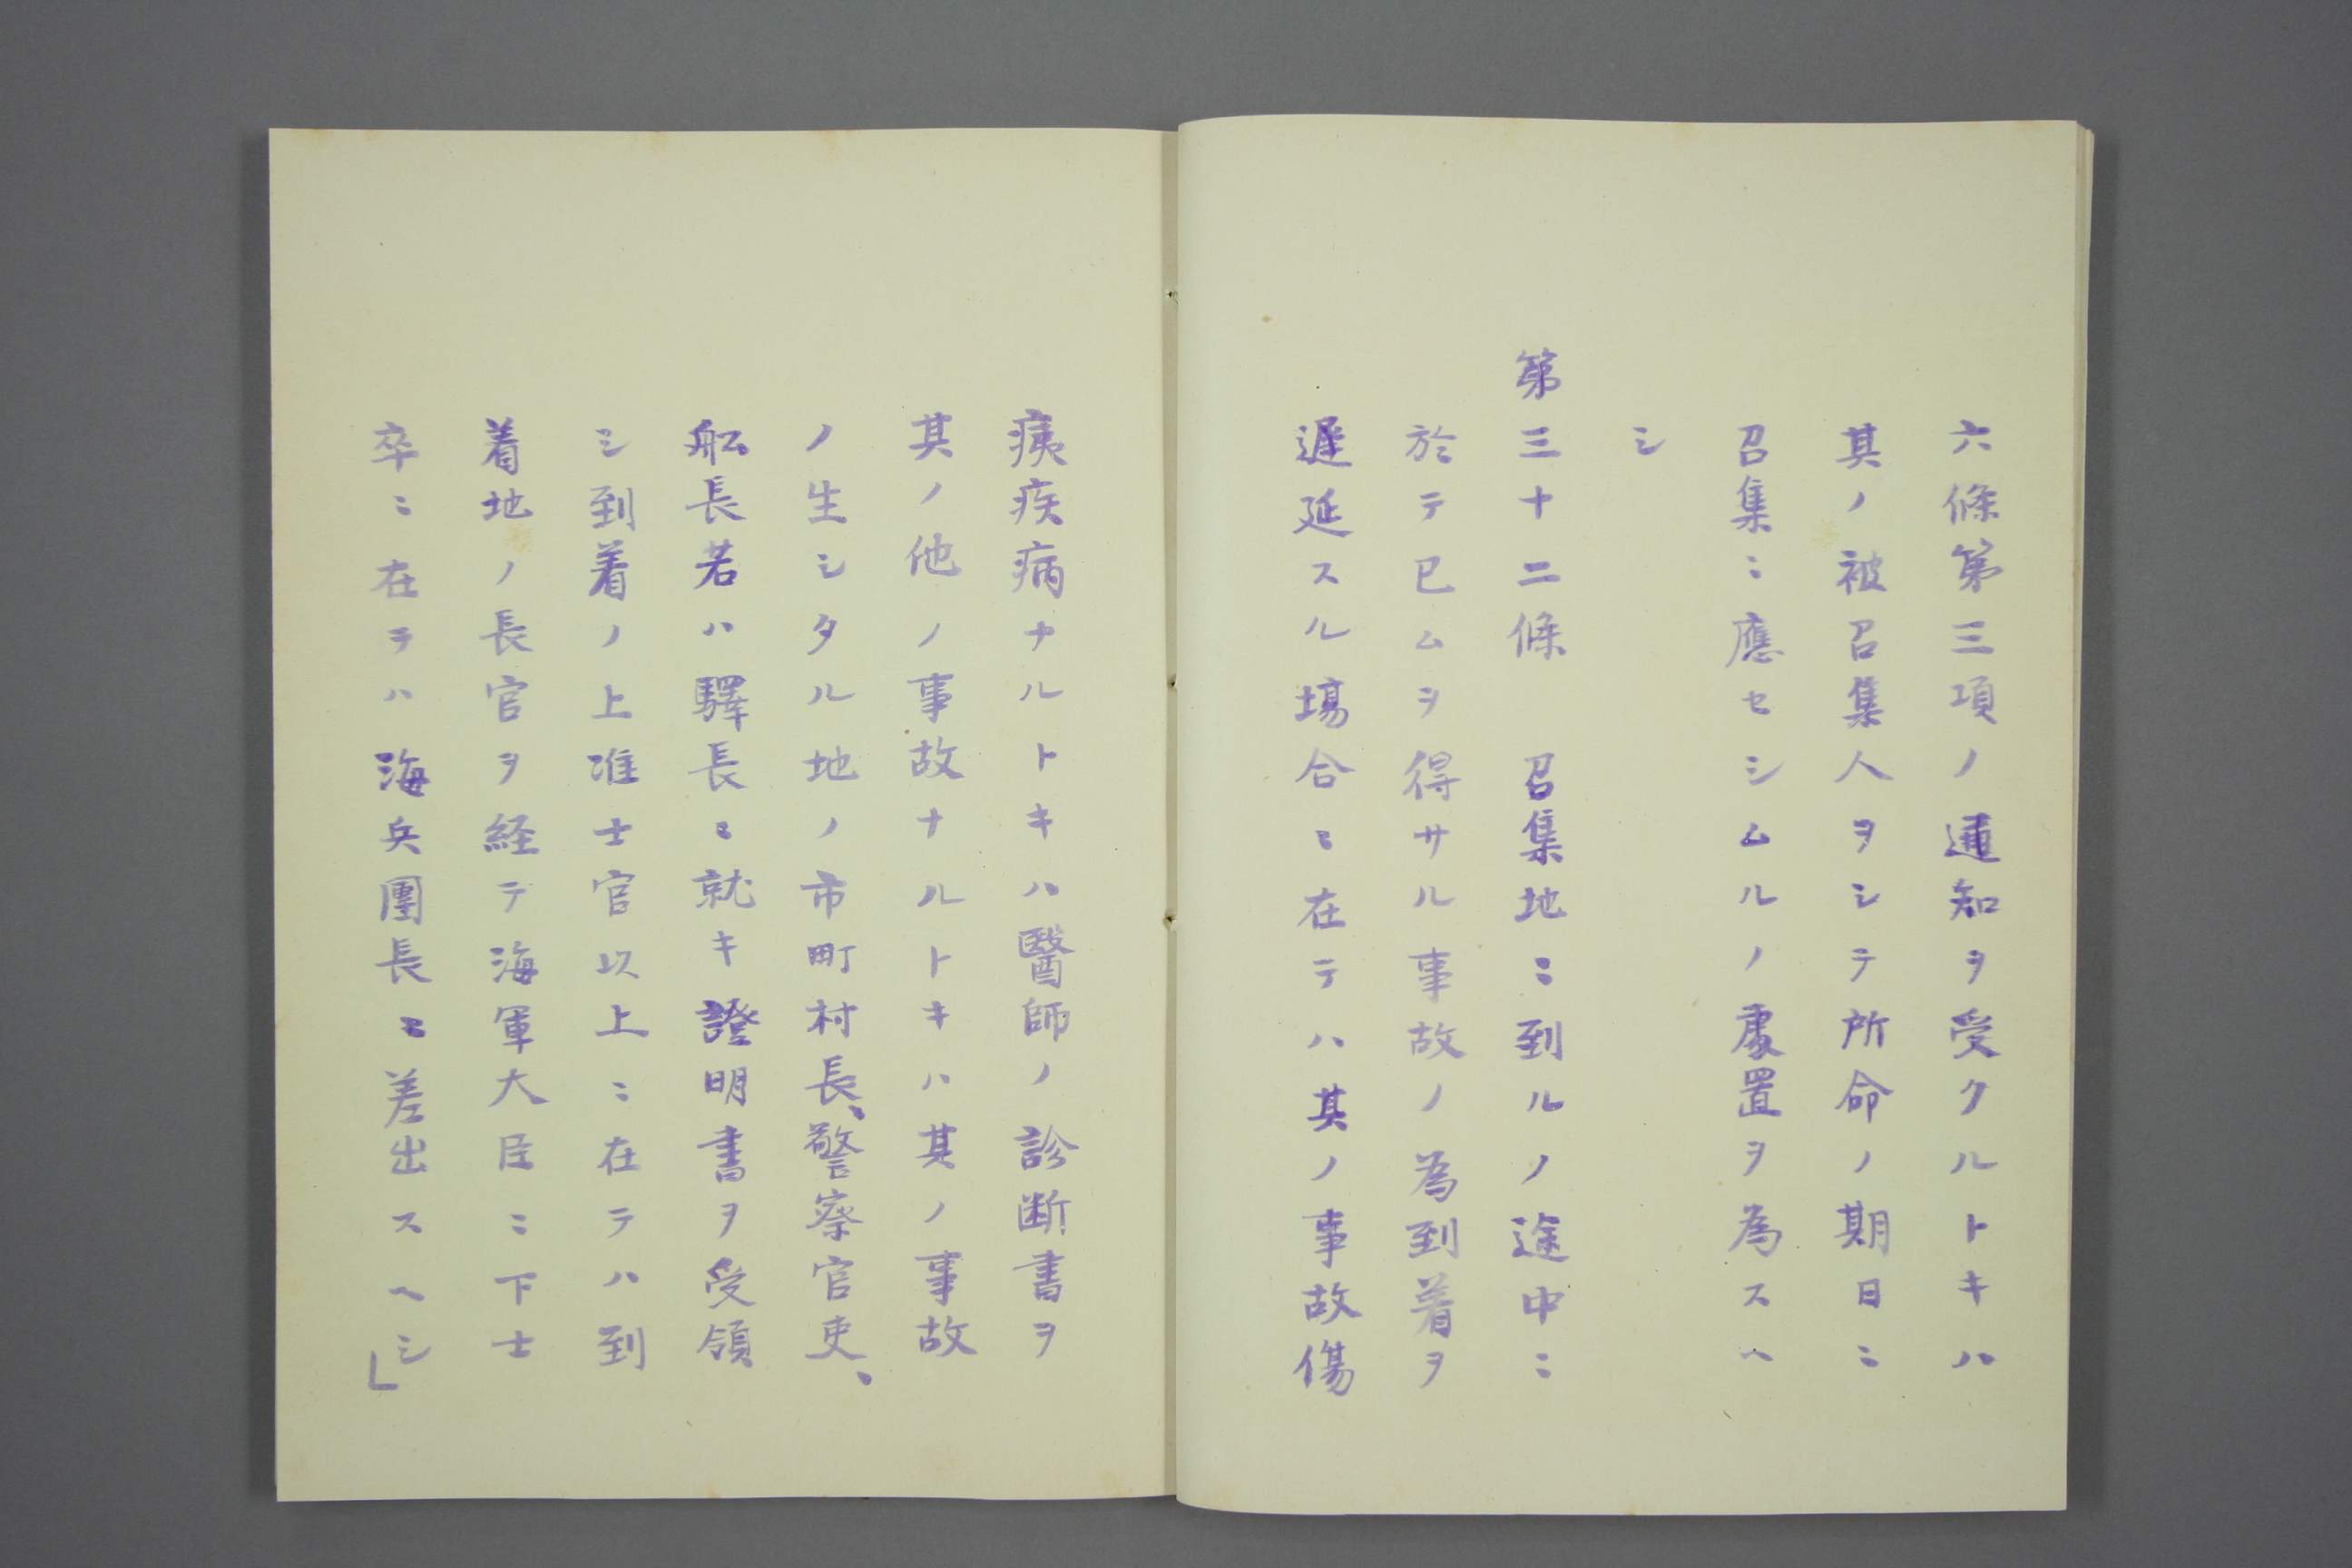 六條第三項ノ通知ヲ受クルトキハ
其ノ被召集人ヲシテ所命ノ期日ニ
召集ニ應セシムルノ處置ヲ為スヘ
シ
第三十二條　召集地ニ到ルノ途中ニ
於テ已ムヲ得サル事故ノ為到着ヲ
遅延スル場合ニ在テハ其ノ事故傷
痍疾病ナルトキハ醫師ノ診断書ヲ
其ノ他ノ事故ナルトキハ其ノ事故
ノ生シタル地ノ市町村長、警察官吏、
船長若ハ驛長ニ就キ證明書ヲ受領
シ到着ノ上准士官以上ニ在テハ到
着地ノ長官ヲ経テ海軍大臣ニ下士
卒ニ在テハ海兵團長ニ差出スヘシ」